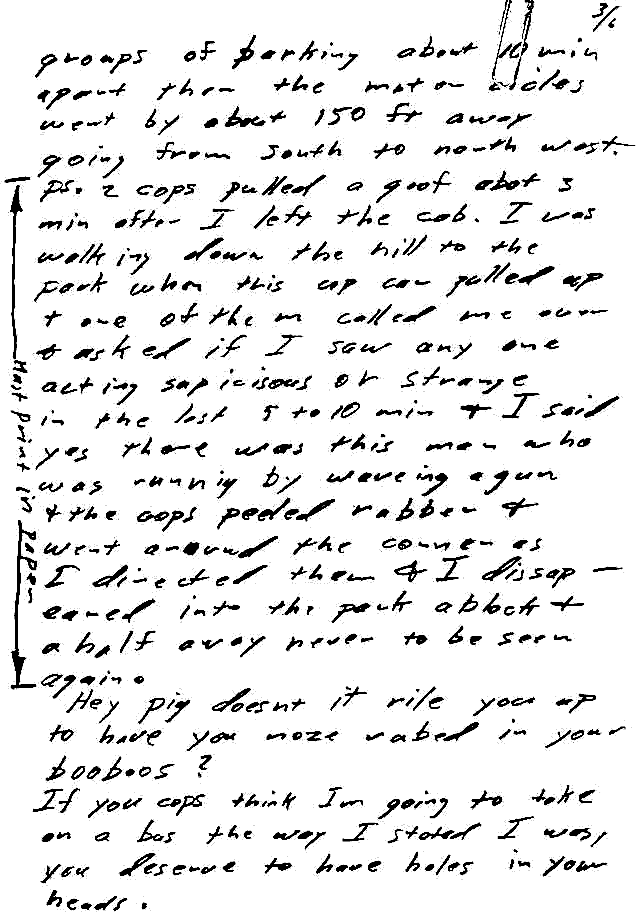 3/6
groups of barking about 10 min
apart then the motor cicles
went by about 150 ft away
going from south to north west.
ps. 2 cops pulled a goof abot 3
min after I left the cab. I was
walking down the hill to the
park when this cop car pulled up
+ one of them called me over
+ asked if I saw any one
acting sapicisous or strange
in the last 5 to 10 min + I said
yes there was this man who
was runnig by waveing a gun
+ the cops peeled rubber +
went around the corner as
I directed them + I dissap-
eared into the park a block +
a half away never to be seen
again.
Must print in paper
Hey pig doesnt it rile you up
to have you noze rubed in your
booboos?
If you cops think Im going to take
on a bus the way I stated I was,
you deserve to have holes in your
heads.